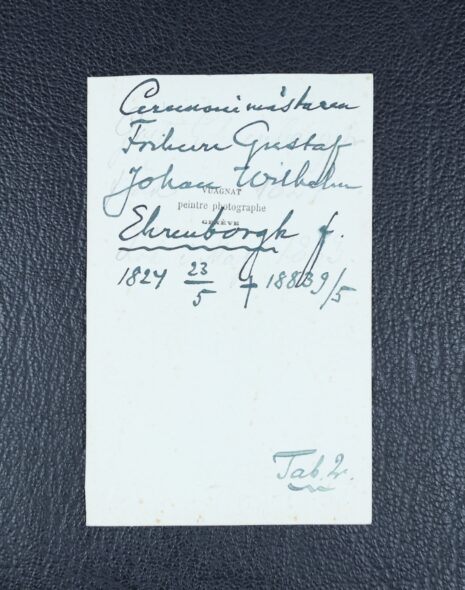 Ceremonimästaren
Friherre Gustaf
Johan Wilhelm
VUAGNAT
peintre photographe
GENÈVE
Ehrenborgh f.
1824 23/5 † 1883 9/5
Tab. 2.